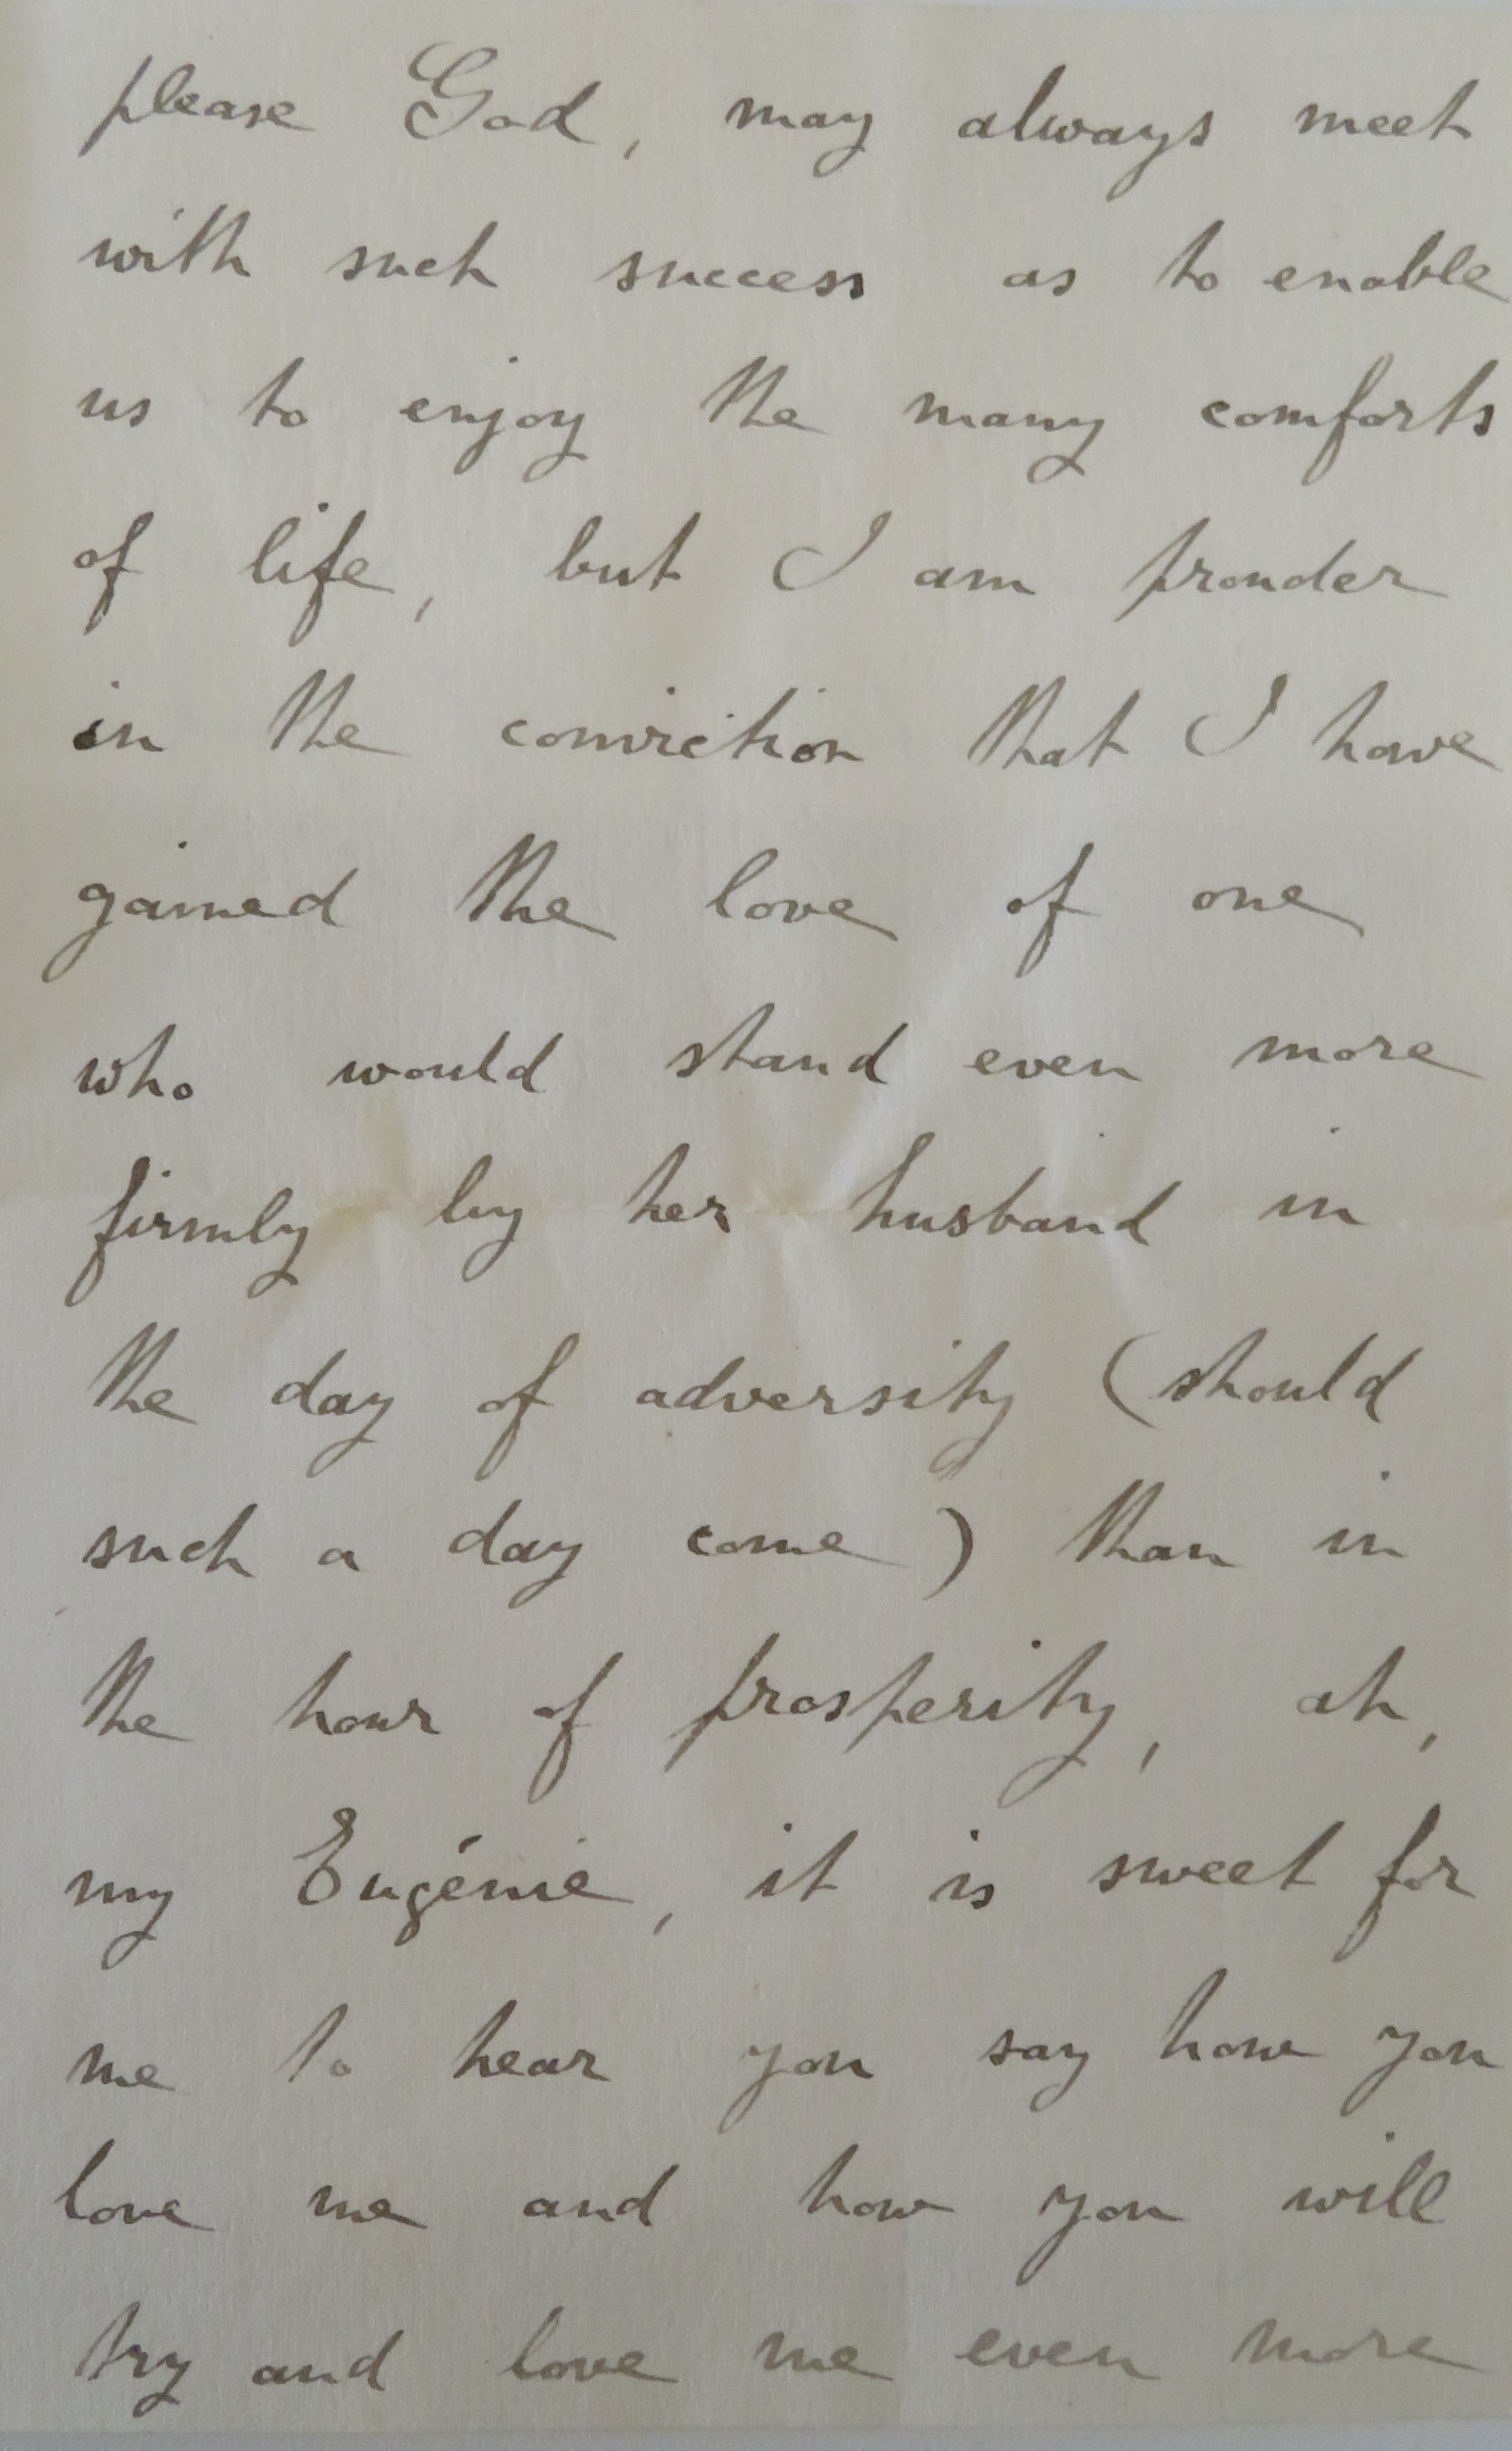 please God, may always meet
with such success as to enable
us to enjoy the many comforts
of life, but I am prouder
in the conviction that I have
gained the love of one
who would stand even more
firmly by her husband in
the day of adversity (should
such a day come) than in
the hour of prosperity, ah,
my Eugénie, it is sweet for
me to hear you say how you
love me and how you will
try and love me even more